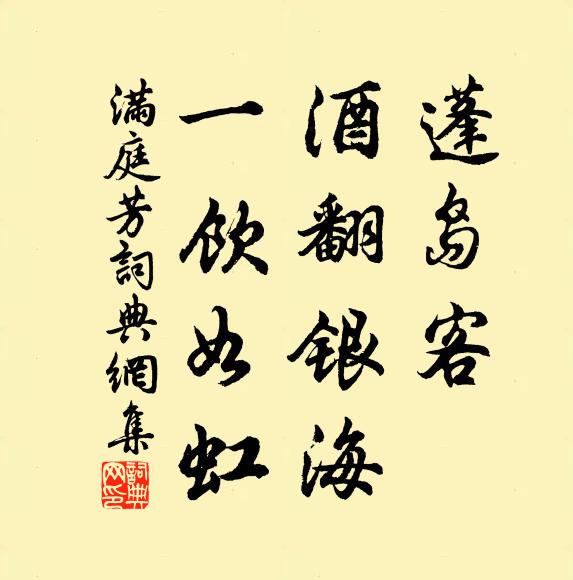 蓬島客
酒翻銀海
一飲如虹
滿庭芳詞典網集
詞典網印